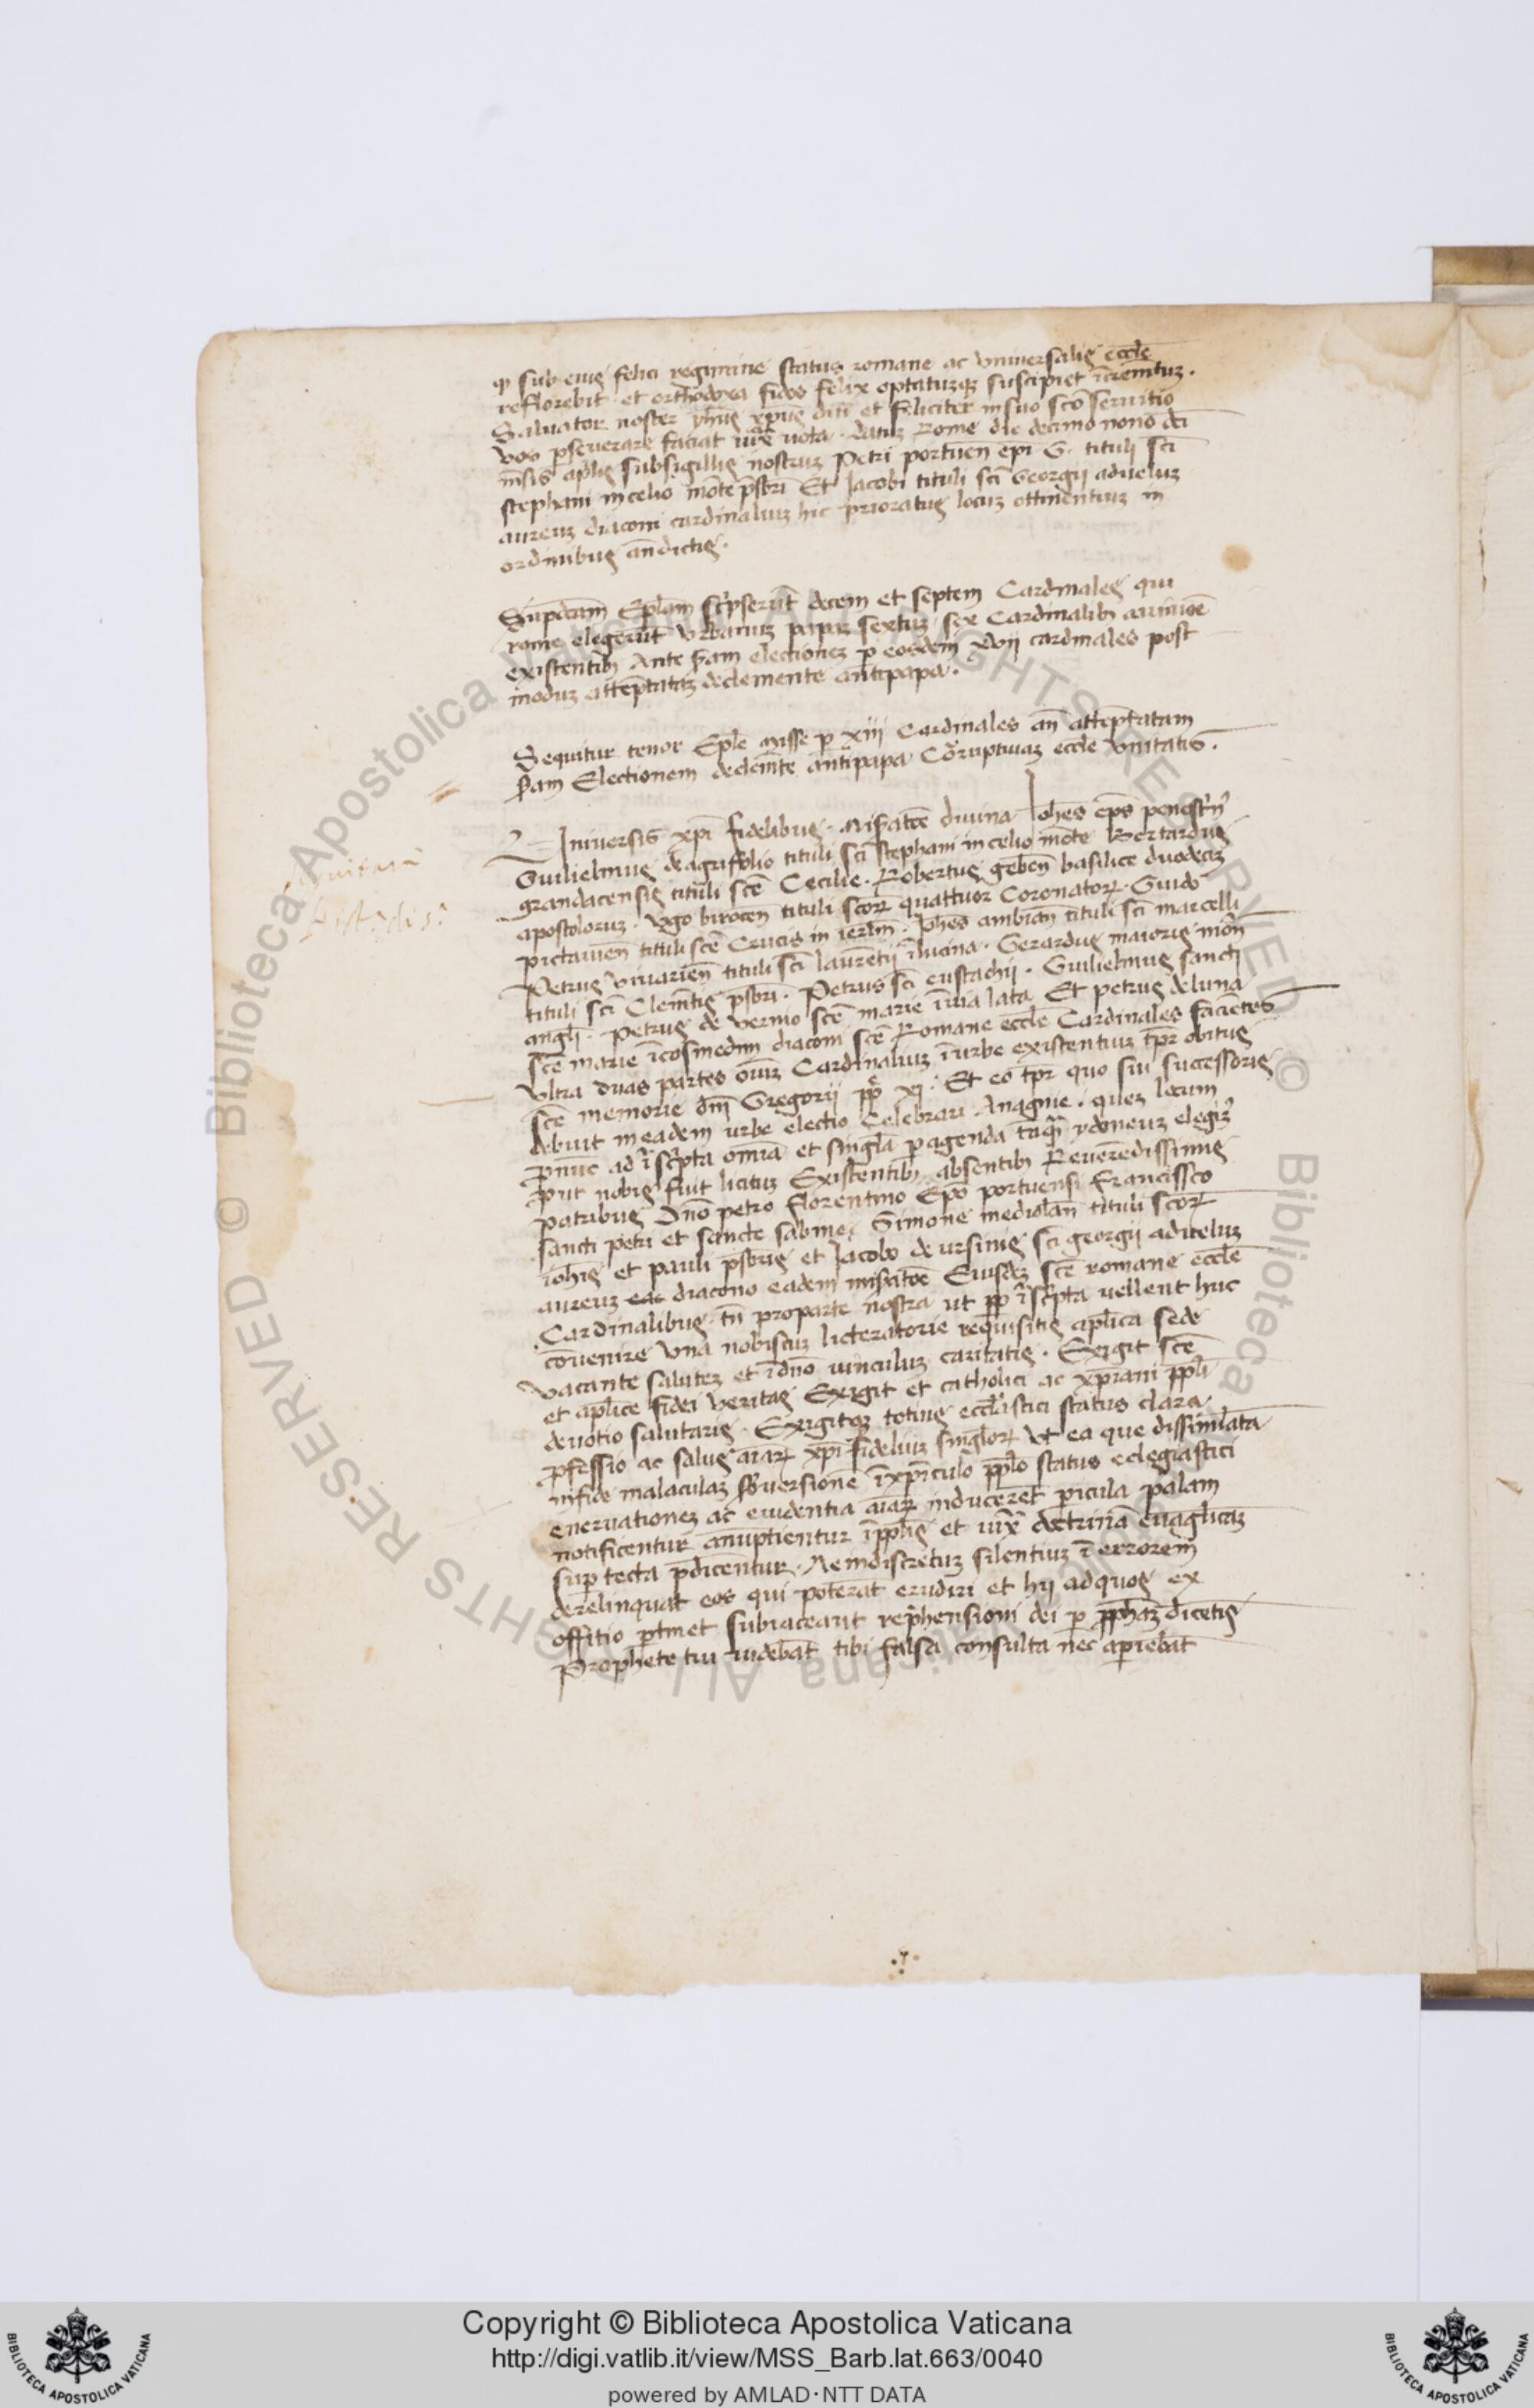 ꝙ sub eius felici regimine status romane ac vniuersalis eccl̄e
reflorebit et orthodoxa fides felix optatumqꝫ suscipiet īcrem̄tuꝫ.
Saluator noster yhūs xp̄us diu et feliciter in suo scō seruitio
vos ꝑseuerare faciat iux̄ uota. datuꝫ Rome die decimo nono
m̄sis aplis sub sigillis nostruꝫ Petri portuen̄ ep̄i G. tituli sc̄i
stephani in celio mōte pr̄sbri Et Jacobi tituli sc̄i Georgij ad ueluꝫ
aureuꝫ diaconi cardinaliuꝫ hic prioratus locuꝫ ottinentiuꝫ in
ordinibus an̄dictis.
Sup̄dcām Ep̄lam scpserūt decem et septem Cardinales qui
rome elegerūt vrbanuꝫ papaꝫ sextuꝫ sex Cardinalibꝫ auinioē
existentibꝫ Ante s̄am electioneꝫ ꝑ eosdem xvij cardinales post
moduꝫ attēptatā de clemente antipapa.
Sequitur tenor Ep̄le misse ꝑ xiij Cardinales an̄ attēptatam
s̄am Electionem de clem̄te antipapa Corruptiuaꝫ eccl̄e vnitatis.
Vniuersis xp̄i fidelibus. Mis̄atōe diuina Joh̄es ep̄s penestrn̄
Guilielmus de agrifolio tituli sc̄i stephani in celio mōte Bertardus
grandacensis tituli sc̄e Cecilie. Robertus geben̄ basilice duodeciꝫ
apostoloruꝫ. Vgo birocen̄ tituli scōꝝ quattuor Coronatoꝝ. Guido
pictauien̄ tituli sc̄e Crucis in ierlm̄. Joh̄es ambian̄ tituli sc̄i marcelli
Petrus viuarien̄ tituli sc̄i laurētij ī lucina. Gerardus maioris mon̄
tituli sc̄i Clem̄tis pr̄sbri. Petrus sc̄i eustachij. Guilielmus sancti
angli. Petrus de vernio sc̄e marie ī uia lata Et petrus de luna
sc̄e marie ī cosmedin diaconi sc̄e Romane eccl̄e Cardinales faciētes
vltra duas partes oīuꝫ Cardinaliuꝫ ī urbe existentiuꝫ tp̄r obitus
sc̄e memorie dn̄i Gregorij pp̄ xj. Et eo tp̄r quo sui successoris
debuit in eadem urbe electio Celebrari Anagnie. queꝫ locum
ꝓ nūc ad īscpta omīa et singla ꝑagenda tāqꝫ ydoneuꝫ elegiꝫ
put nobis fuit licituꝫ Existentibꝫ absentibꝫ Reuerēdissimis
patribus Dn̄o petro florentino Epō portuensi Francissco
sancti petri et sancte sabine, Simone mediolan̄ tituli scōꝝ
ioh̄is et pauli pr̄sbris et Jacobo de ursinis sc̄i georgij ad uelum
aureuꝫ eac diacono eadem mis̄atōe Eiusdeꝫ sc̄e romane eccl̄e
Cardinalibus. tn̄ pro parte nostra ut ꝓ īscpta uellent huc
cōuenire vna nobiscuꝫ licteratorie requisitis aplica sede
vacante saluteꝫ et ī dn̄o uinculuꝫ caritatis. Exigit sc̄e
et aplice fidei veritas Exigit et catholici ac xp̄iani pp̄li
deuotio salutaris. Exigitqꝫ totius eccl̄iastici status clara
ꝓfessio ac salus aīaꝝ xp̄i fideliuꝫ singloꝝ Vt ea que dissimlata
in fide malaculaꝫ s̄buersionē ī xp̄i piculo pp̄lo status eclegiastici
eneruationeꝫ ac euidentia aīaꝝ induceret picula palam
notificentur an̄uptientur ī pp̄lis et iux̄ doctrinā euāglicaꝫ
suꝑ tecta p̄dicentur. Ne indiscretuꝫ silentiuꝫ ī errorem
derelinquat eos qui poterāt erudiri et hij ad quos ex
offitio ꝑtinet subiaceant rep̄hensioni dei ꝑ ꝓphaꝫ dicētis
Prophete tui uidebāt tibi falsa consulta nec aꝑiebāt
Copyright © Biblioteca Apostolica Vaticana
http://digi.vatlib.it/view/MSS_Barb.lat.663/0040
powered by AMLAD·NTT DATA